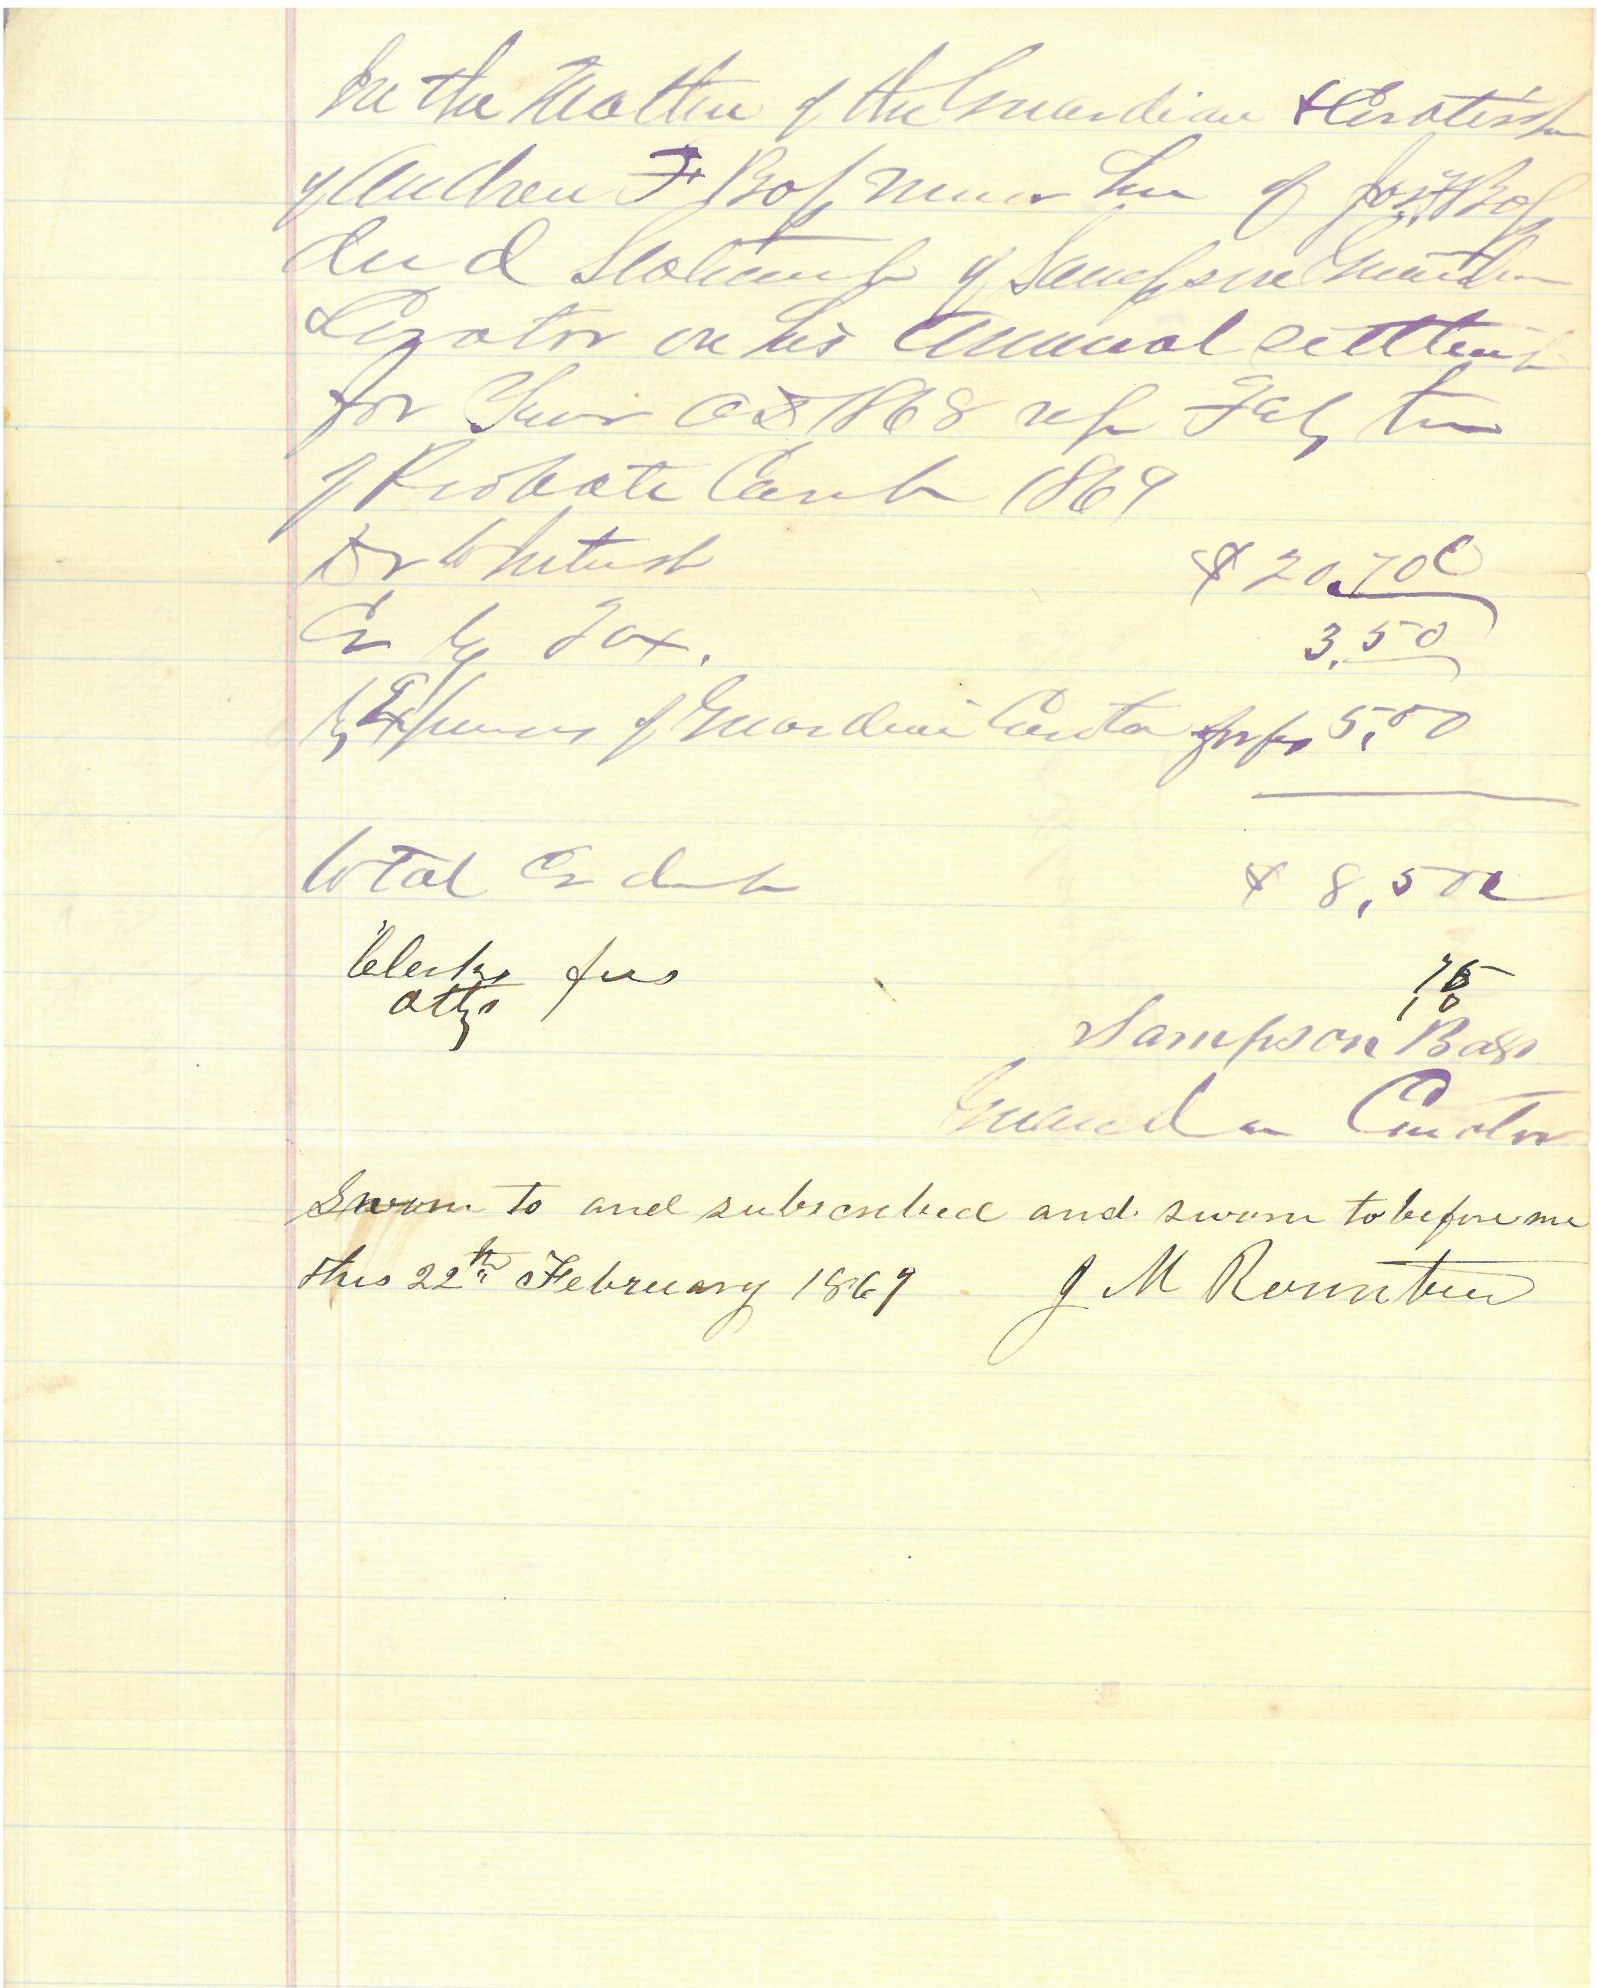 In the Matter of the Guardian & Curatorship
of Andrew F Bass minor heir of Bass
decd Statement of Sampson Guardian
& Curator on his Annual settlement
for Year AD 1868 Feb term
of Probate Court 1869
Dr to Interest $20.70c
Cr by Tax. 3.50
by Expenses of Guardian Curator 5,00
total Credit $8,50c
Clerks fees 75
attys 10
Sampson Bass
Guardian Curator
Sworn to and subscribed and sworn to before me
this 22th February 1869 J M Rountree